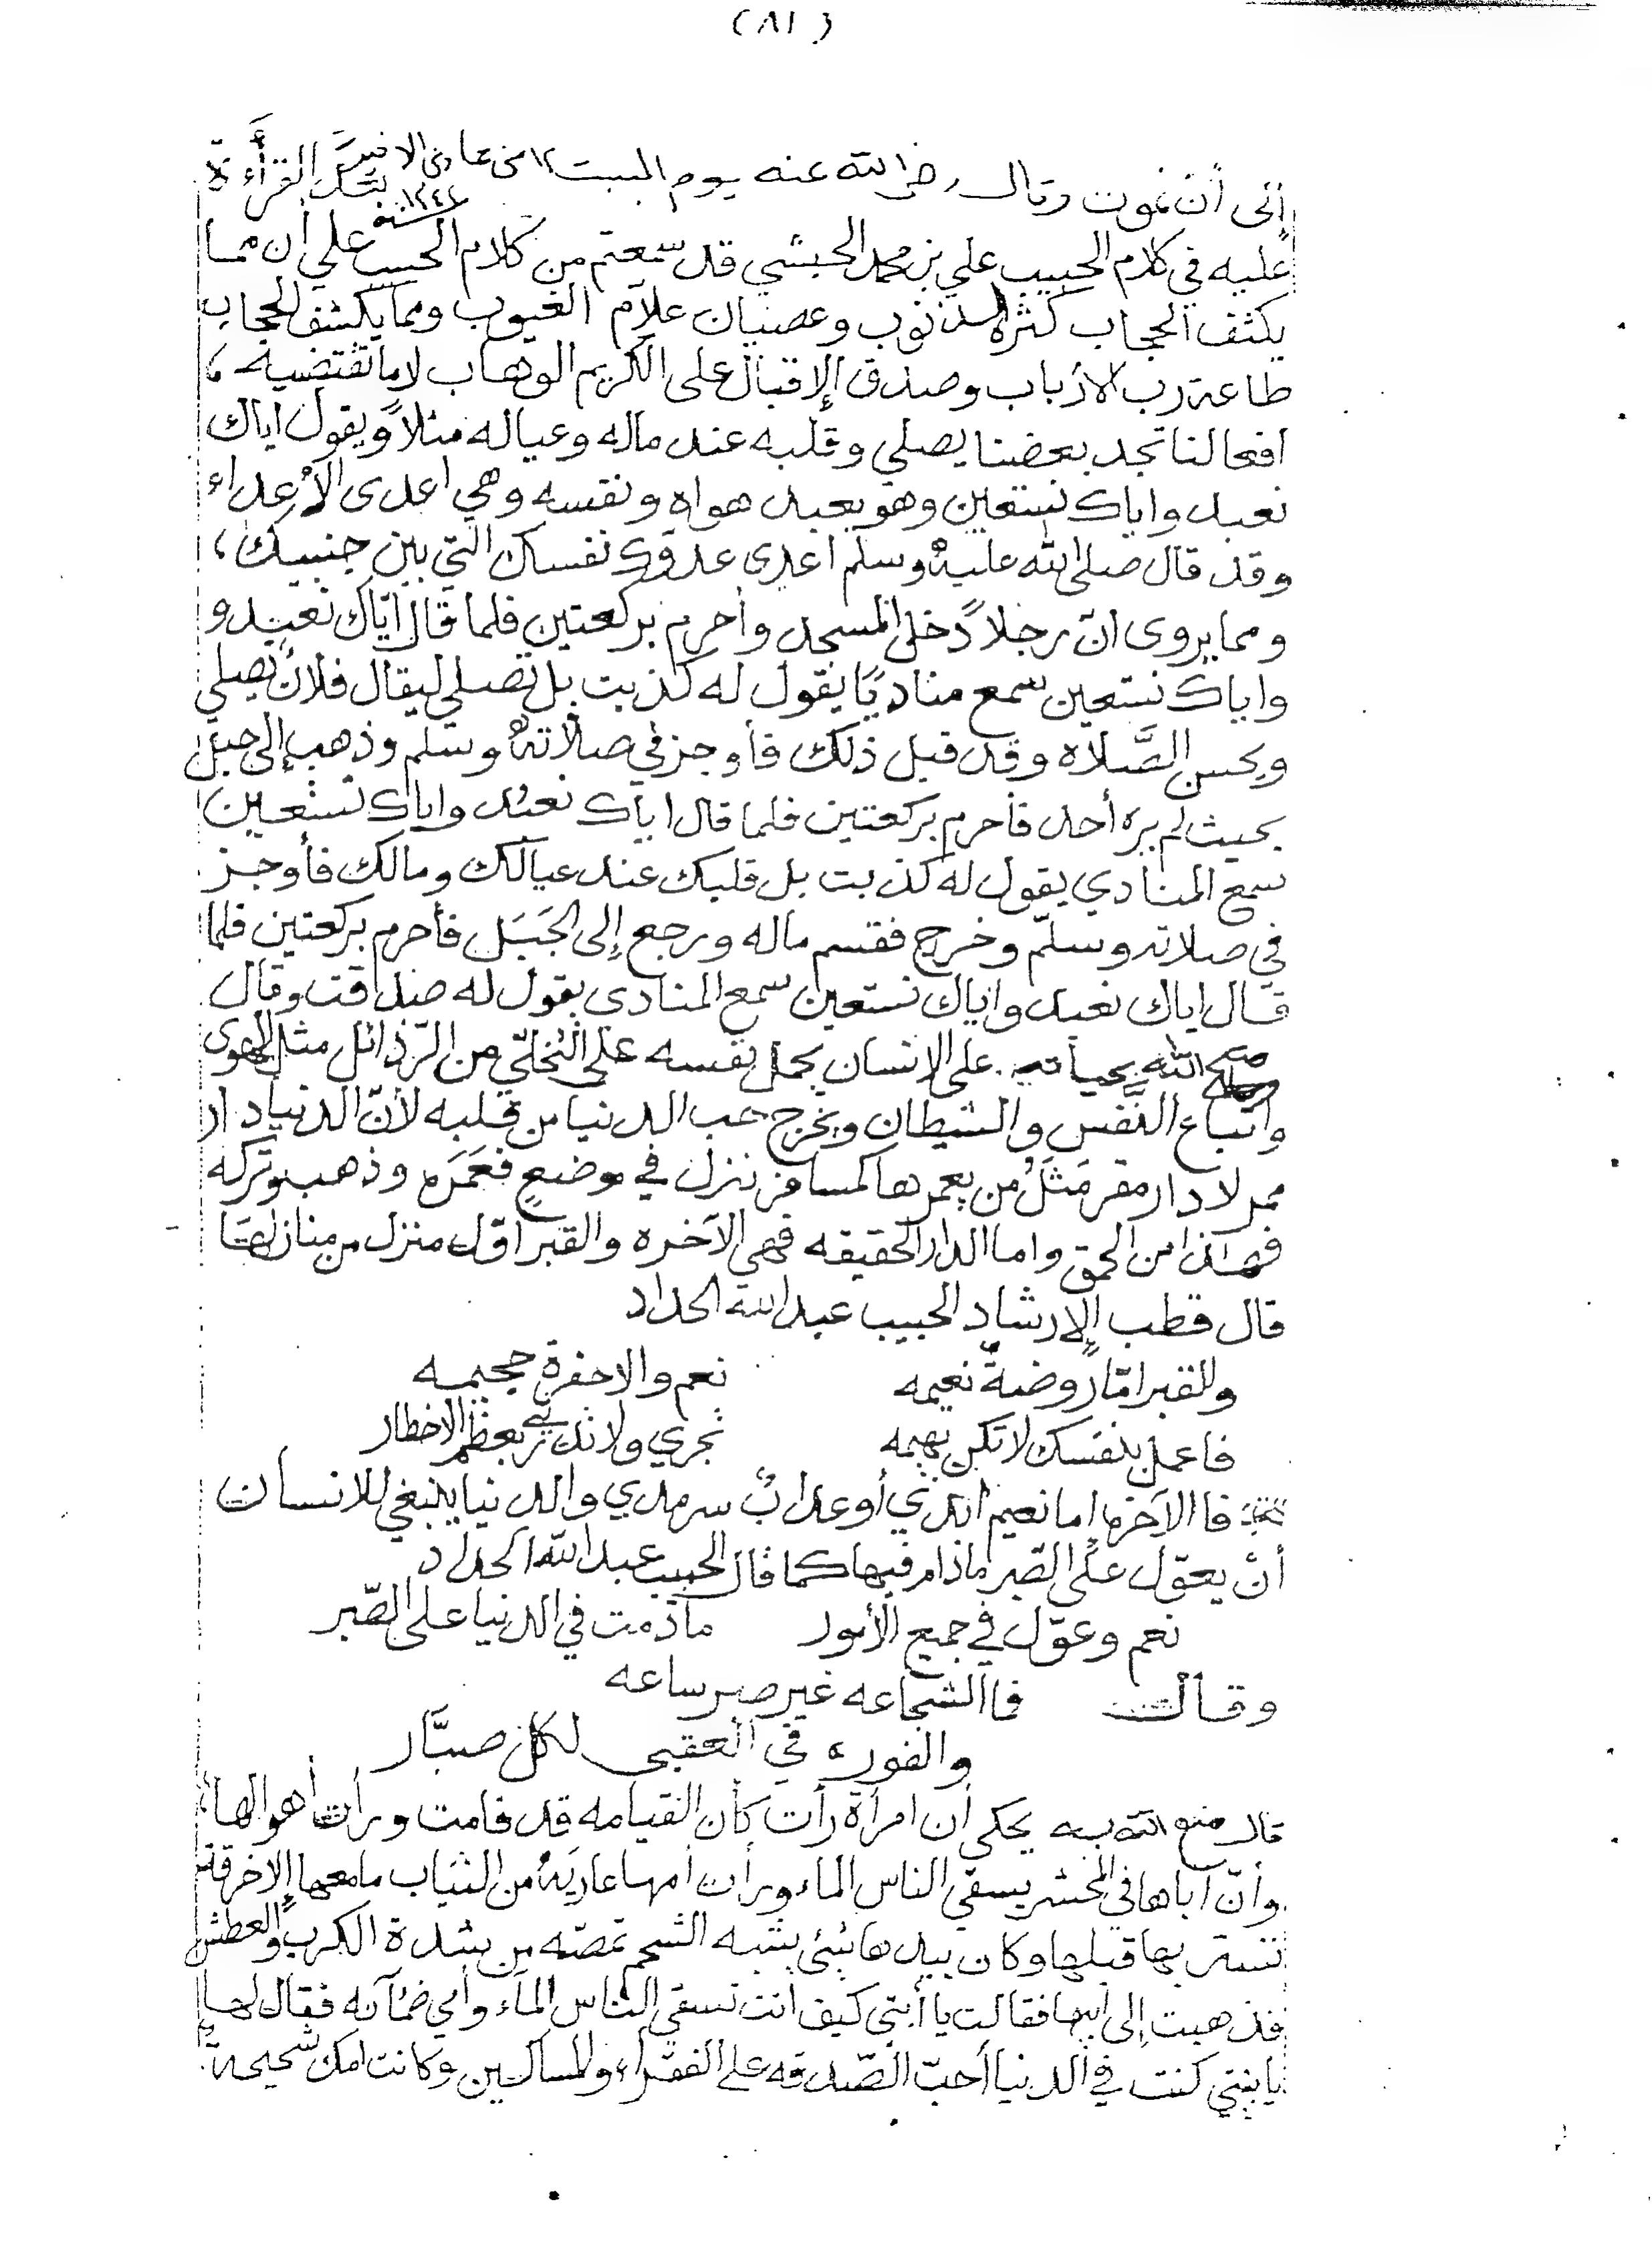 (٨١)
إلى أن نموت وقال رضي الله عنه يوم السبت ١٢ من جمادى الاخير سنة ١٣٤٤ بعد القرأءة
عليه في كلام الحبيب علي بن محمد الحبشي قد سمعتم من كلام الحبيب علي أن مما
يكثف الحجاب كثرة الذنوب وعصيان علاّم الغيوب ومما يكشف الحجاب
طاعة رب الأرباب وصدق الإقبال على الكريم الوهاب لا ما تقتضيه
افعالنا تجد بعضنا يصلي وقلبه عند ماله وعياله مثلاً ويقول اياك
نعبد واياك نستعين وهو يعبد هواه ونفسه وهي اعدى الأعداء
وقد قال صلى الله عليه وسلم اعدى عدوّك نفسك التي بين جنبيك،
ومما يروى انّ رجلاً دخل المسجد وأحرم بركعتين فلما قال ايّاك نعبد و
واياك نستعين سمع منادياً يقول له كذبت بل تصلي ليقال فلان يصلي
ويحسن الصَّلاه وقد قيل ذلك فأوجز في صلاته وسلم وذهب إلى جبل
بحيث لم يره أحد فأحرم بركعتين فلما قال اياك نعبد واياك نستعين
سمع المنادي يقول له كذبت بل قلبك عند عيالك ومالك فأوجز
في صلاته وسلّم وخرج فقسم ماله ورجع إلى الجَبَل فأحرم بركعتين فلما
قال اياك نعبد واياك نستعين سمع المنادى يقول له صدقت وقال
متع الله بحياته على الإنسان يحمل نفسه على التخلّي من الرّذائل مثل الهوى
واتباع النَّفس والشيطان ويخرج حب الدنيا من قلبه لأنّ الدنيا دار
ممر لا دار مقر مَثَلُ من يعمرها كمسافر نزل في موضعٍ فعَمَرَه وذهب وتركه
فهذا من الحمق واما الدار الحقيقه فهي الآخره والقبر اوّل منزل من منازلها
قال قطب الإرشاد الحبيب عبد الله الحداد
والقبر امّا روضةٌ نعيمه نعم والا حفرة جحيمه
فاعمل بنفسك لا تكن بهيمه تجري ولا تدري بعظم الاخطار
فا الآخره إما نعيم ابدي أو عذابٌ سرمدي والدنيا ينبغي للانسان
أنْ يعوّل على الصّبر مادام فيها كما قال الحبيب عبد الله الحداد
نعم وعوّل في جميع الأمور مادمت في الدنيا على الصّبر
وقال فا الشجاعه غير صبر ساعه
والفوز في العقبى لكل صبَّار
قال متع الله به يحكى أن امرأة رأت كأن القيامه قد قامت ورأت أهوالها
وأنّ اباها في المحشر يسقي الناس الماء ورأت أمها عاريةٌ من الثياب مامعها إلا خرقة
تستتر بها قبلها وكان بيدها شئ يشبه الشحم تمصّه من شدة الكرب والعطش
فذهبت إلى ابيها فقالت يا أبتي كيف انت تسقي الناس الماء وأمي ضمآنه فقال لها
يا بنتي كنت في الدنيا أحبّ الصّدقه على الفقراء والمساكين وكانت امك شحيحة